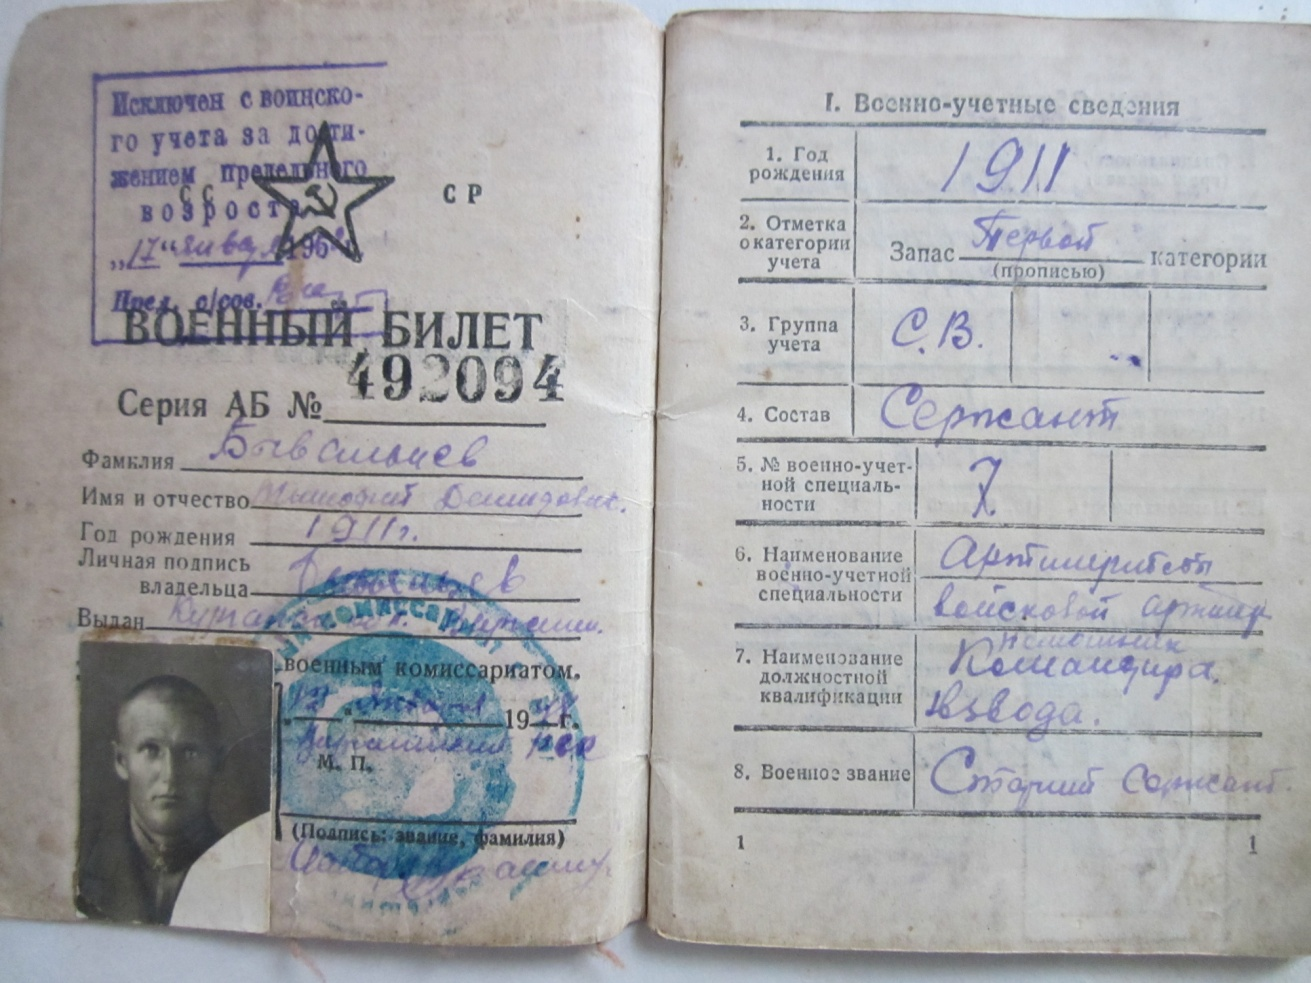 Исключен с воинско-
го учета за дости-
жением предельного
возроста
„17“ января 196
Пред. с/сов.
СС СР
ВОЕННЫЙ БИЛЕТ
Серия АБ № 492094
Фамилия Бывальцев
Имя и отчество
Год рождения 1911г.
Личная подпись
владельца
Выдан
военным комиссариатом.
19 г.
М. П.
(Подпись: звание, фамилия)
I. Военно-учетные сведения
1. Год
рождения 1911
2. Отметка
о категории
учета
Запас Первой категории
(прописью)
3. Группа
учета С.В.
4. Состав Сержант
5. № военно-учет-
ной специаль-
ности 7
6. Наименование
военно-учетной
специальности
Артиллерист
войсковой артилер
7. Наименование
должностной
квалификации
Помошник
Командира
взвода.
8. Военное звание Старший сержант
1 1